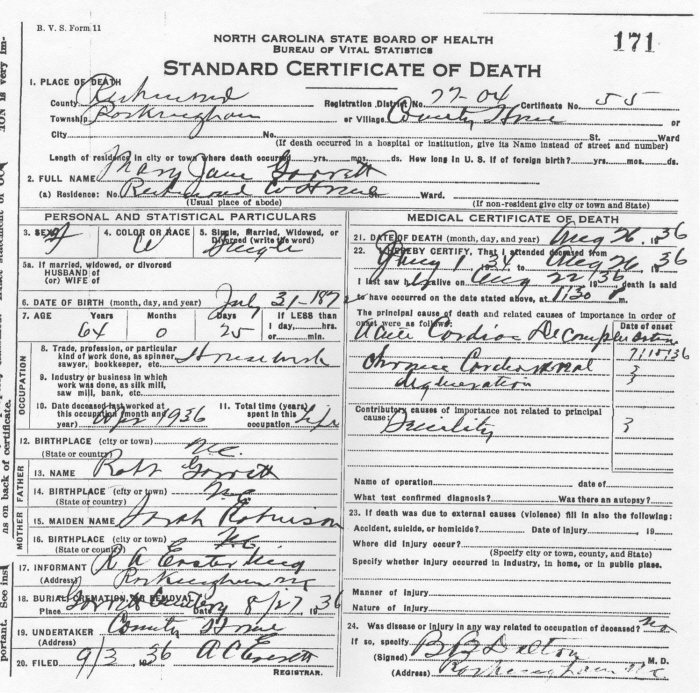 B. V. S. Form 11
NORTH CAROLINA STATE BOARD OF HEALTH
BUREAU OF VITAL STATISTICS
171
STANDARD CERTIFICATE OF DEATH
1. PLACE OF DEATH
County Richmond Registration District No. 77-04 Certificate No. 55
Township Rockingham or Village County Home or
City No. St. Ward
(If death occurred in a hospital or institution, give its Name instead of street and number)
Length of residence in city or town where death occurred yrs. mos. ds. How long in U. S. if of foreign birth? yrs. mos. ds.
2. FULL NAME Mary Jane Garrett
(a) Residence: No. Richmond Co Home Ward.
(Usual place of abode) (If non-resident give city or town and State)
PERSONAL AND STATISTICAL PARTICULARS
3. SEX F 4. COLOR OR RACE W 5. Single, Married, Widowed, or Divorced (write the word) Single
5a. If married, widowed, or divorced
HUSBAND of
(or) WIFE of
6. DATE OF BIRTH (month, day, and year) July 31-1872
7. AGE Years Months Days If LESS than
1 day, hrs.
or min.
64 0 25
OCCUPATION
8. Trade, profession, or particular
kind of work done, as spinner,
sawyer, bookkeeper, etc. Housework
9. Industry or business in which
work was done, as silk mill,
saw mill, bank, etc.
10. Date deceased last worked at
this occupation (month and
year) Apr 1936
11. Total time (years)
spent in this
occupation life
12. BIRTHPLACE (city or town) N.C.
(State or country)
FATHER
13. NAME Robt Garrett
14. BIRTHPLACE (city or town) N.C.
(State or country)
MOTHER
15. MAIDEN NAME Sarah Robinson
16. BIRTHPLACE (city or town) N.C.
(State or country)
17. INFORMANT R A Easterling
(Address) Rockingham NC
18. BURIAL, CREMATION, OR REMOVAL
Place Cemetery Date 8/27 1936
19. UNDERTAKER County Home
(Address)
20. FILED 9/3 1936 A C Everett
REGISTRAR.
MEDICAL CERTIFICATE OF DEATH
21. DATE OF DEATH (month, day, and year) Aug 26, 1936
22. I HEREBY CERTIFY, That I attended deceased from
Aug 1 1934 to Aug 26, 1936
I last saw h alive on Aug 22 1936, death is said
to have occurred on the date stated above, at 1130 P m.
The principal cause of death and related causes of importance in order of
onset were as follows:
Date of onset
Acute Cardiac
7/15/36
Chronic
degeneration
Contributory causes of importance not related to principal
cause:
Senility
Name of operation date of
What test confirmed diagnosis? Was there an autopsy?
23. If death was due to external causes (violence) fill in also the following:
Accident, suicide, or homicide? Date of injury , 19
Where did injury occur?
(Specify city or town, county, and State)
Specify whether injury occurred in industry, in home, or in public place.
Manner of Injury
Nature of Injury
24. Was disease or injury in any way related to occupation of deceased? No
If so, specify
(Signed) B B Dalton M. D.
(Address) Rockingham NC
as on back of certificate.
portant. See inst